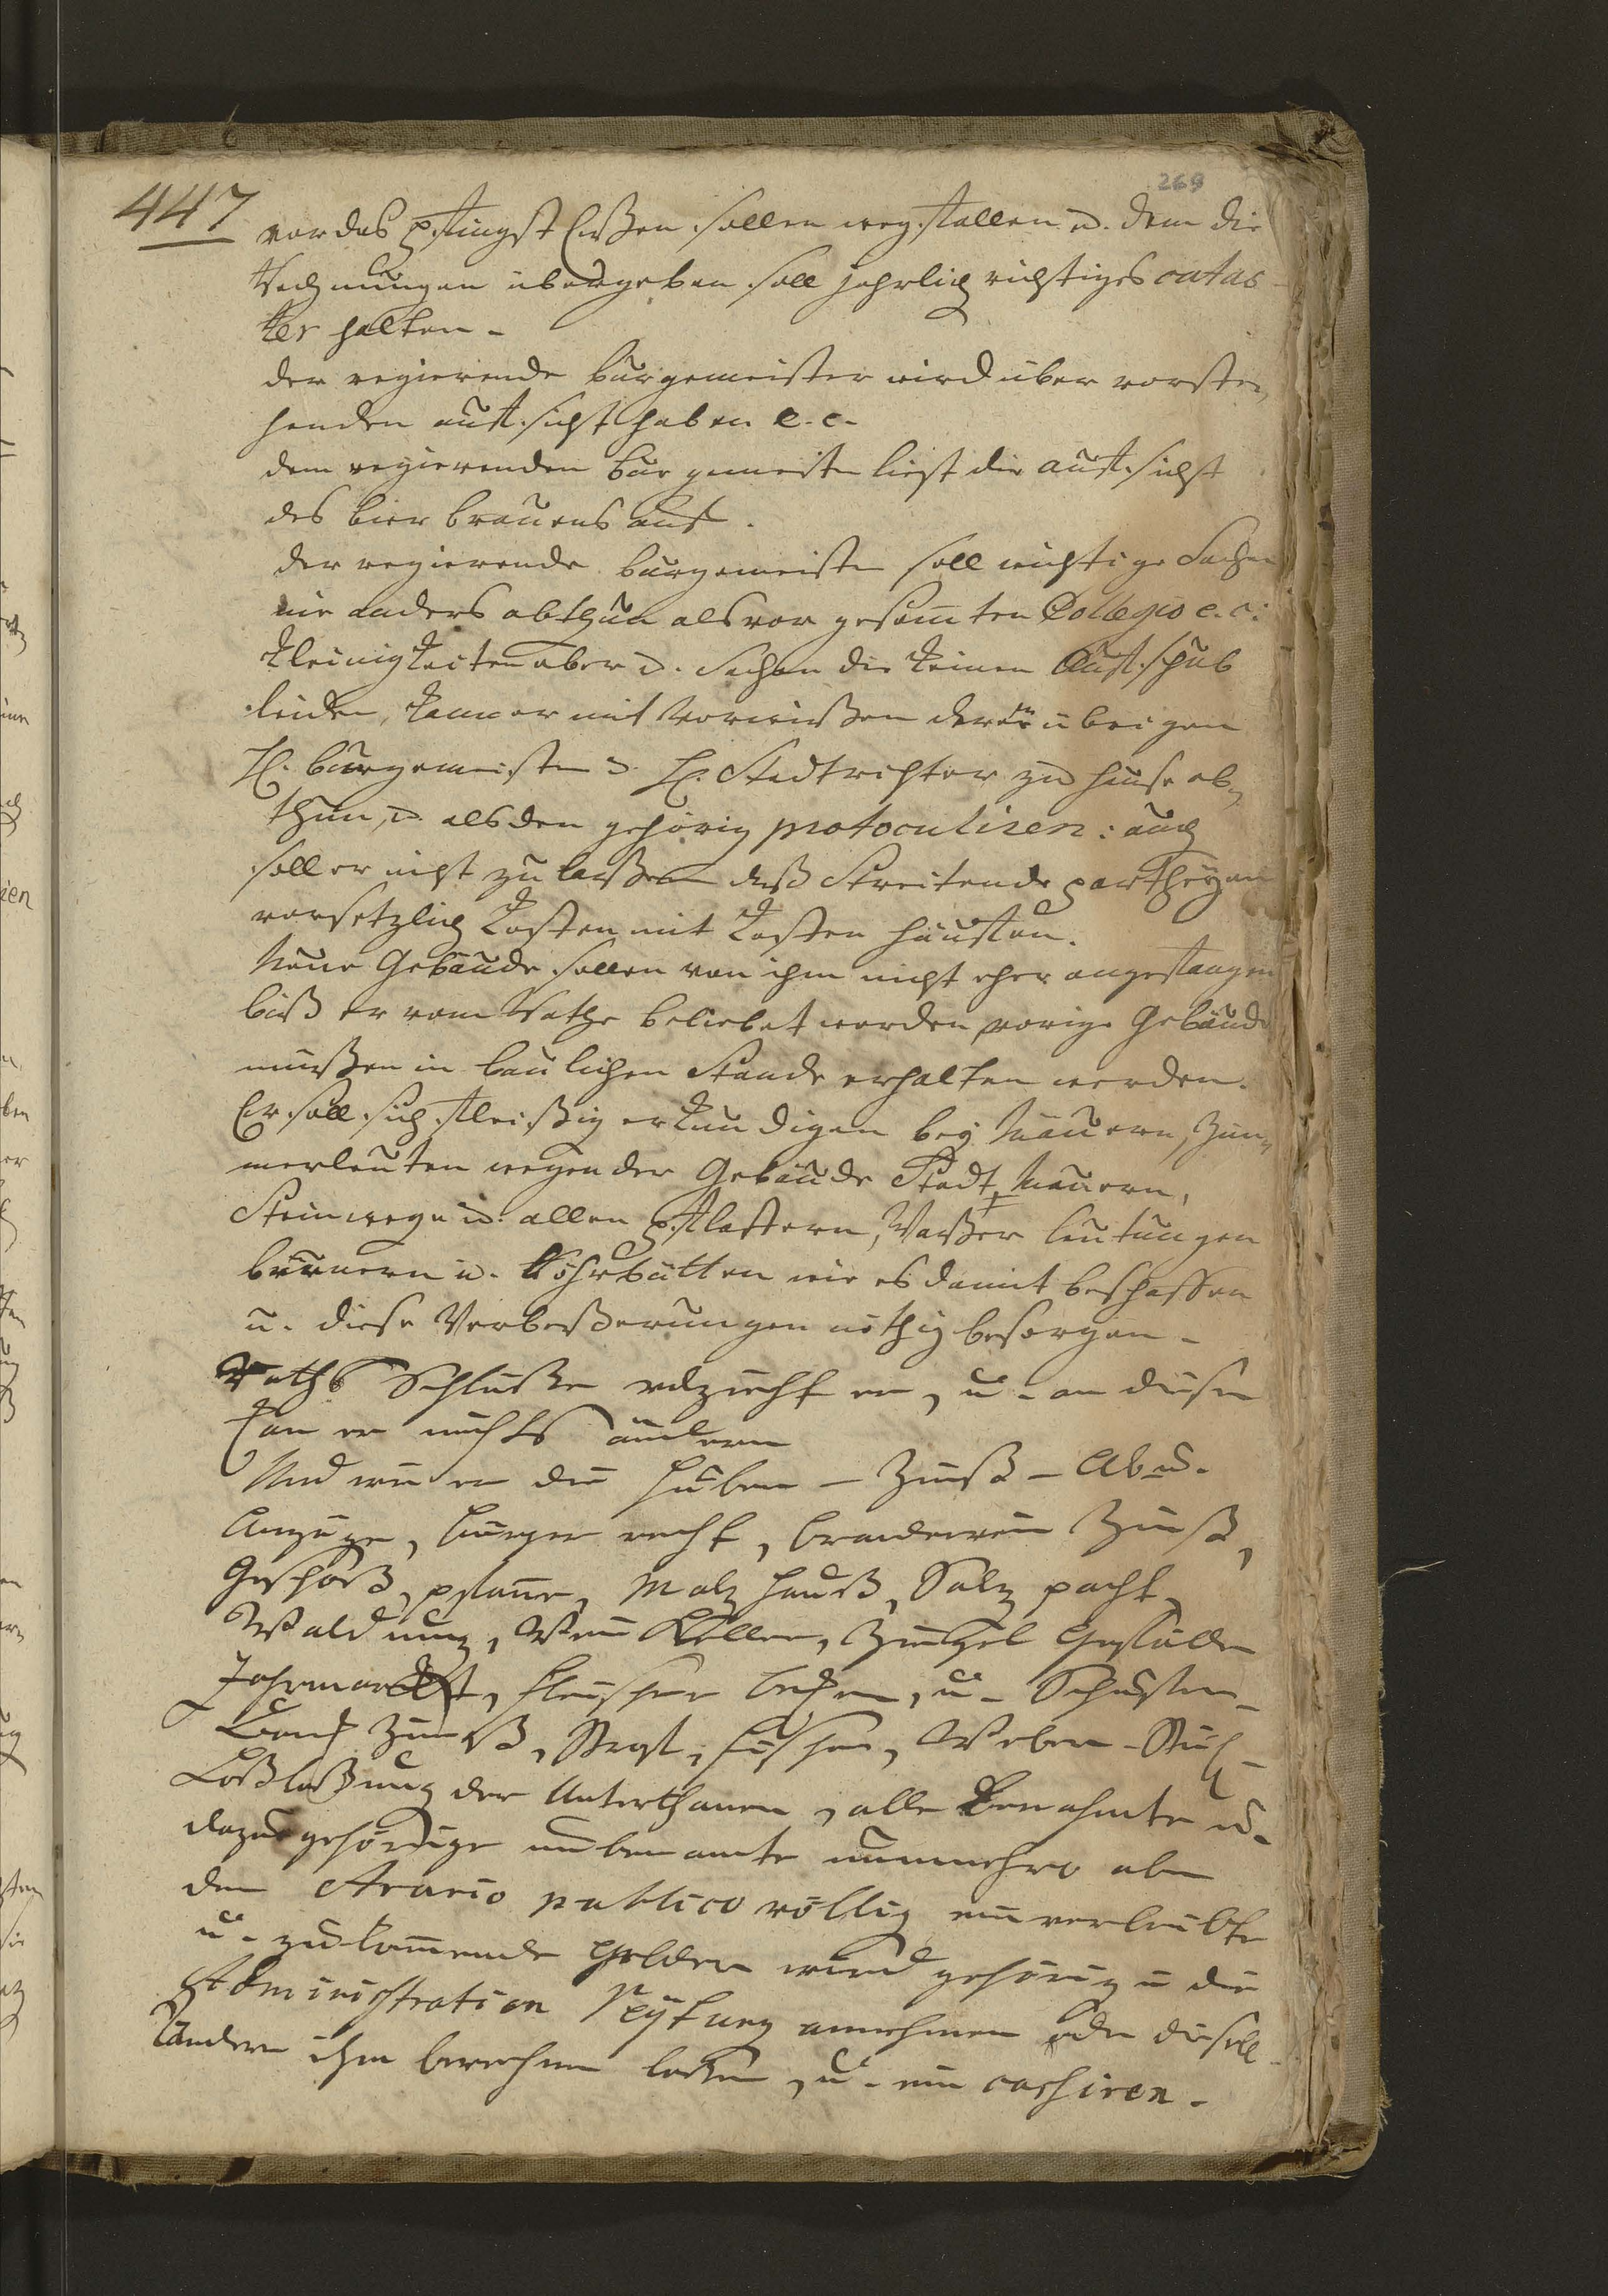 269
447
vor das pfingst Essen sollen wegfallen u. dem die
Rechnungen übergeben soll jehrlich richtiges catas
ter halten -
der regierende burgemeister wird über vorste,
henden auffsicht haben e. c.
dem regierenden burgemeister liegt die auffsicht
des bier brauens auf.
der regierende burgemeister soll wichtige Sachen
nie anders abthun als vor gesamten Collegio e. c:
kleinigkeiten aber u. Sachen die keinen Auffschub
leiden, kann er mit Vorwissen derer übrigen
H. burgemeister u. H. Stadtrichter zu hause ab,
thun, u. alsden gehörig protoculiren: auch
soll er nicht zu lassen daß Streitende partheyen
vorsetzlich Kosten mit Kosten häuffen.
Neue Gebäude sollen von ihm nicht eher angefangen
biß er vom Rathe beliebet worden, vorige Gebäude
müßen in baulichen Stande erhalten werden.
Er soll sich fleißig erkundigen bey Mäurern, Zim,
merleuten wegen der Gebäude Stadt Mauern,
Steinwege u. allen pflastern, Waßer leutungen
brünnern u. Röhrbütten wie es damit beschaffen
u. diese Verbeßerungen nöthig besorgen -
Raths Schlüße volzieht er, u. an diesen
kan er nichts ändern
Und wie er die Huben - Zinß - Ab u.
Anzüge, bürger recht, brandwein Zinß,
Geschoß, pfanne, Malz hauß, Salz pacht,
Waldung, Wein Keller, Ziegel
Jahrmarkt, fleischer, u. Schuster -
Banck Zinß, fischer, Weber - Stühl -
Loßlaßung der Unterthanen, alle Benahmte u.
dazu gehörige unbenamte nunmehro aber
dem Arario publico völlig einverleibte
u. zukommende Gelder wird gehörig in die
Administration annehmen oder
ihm berechnen laßen, u. ein cashiren.